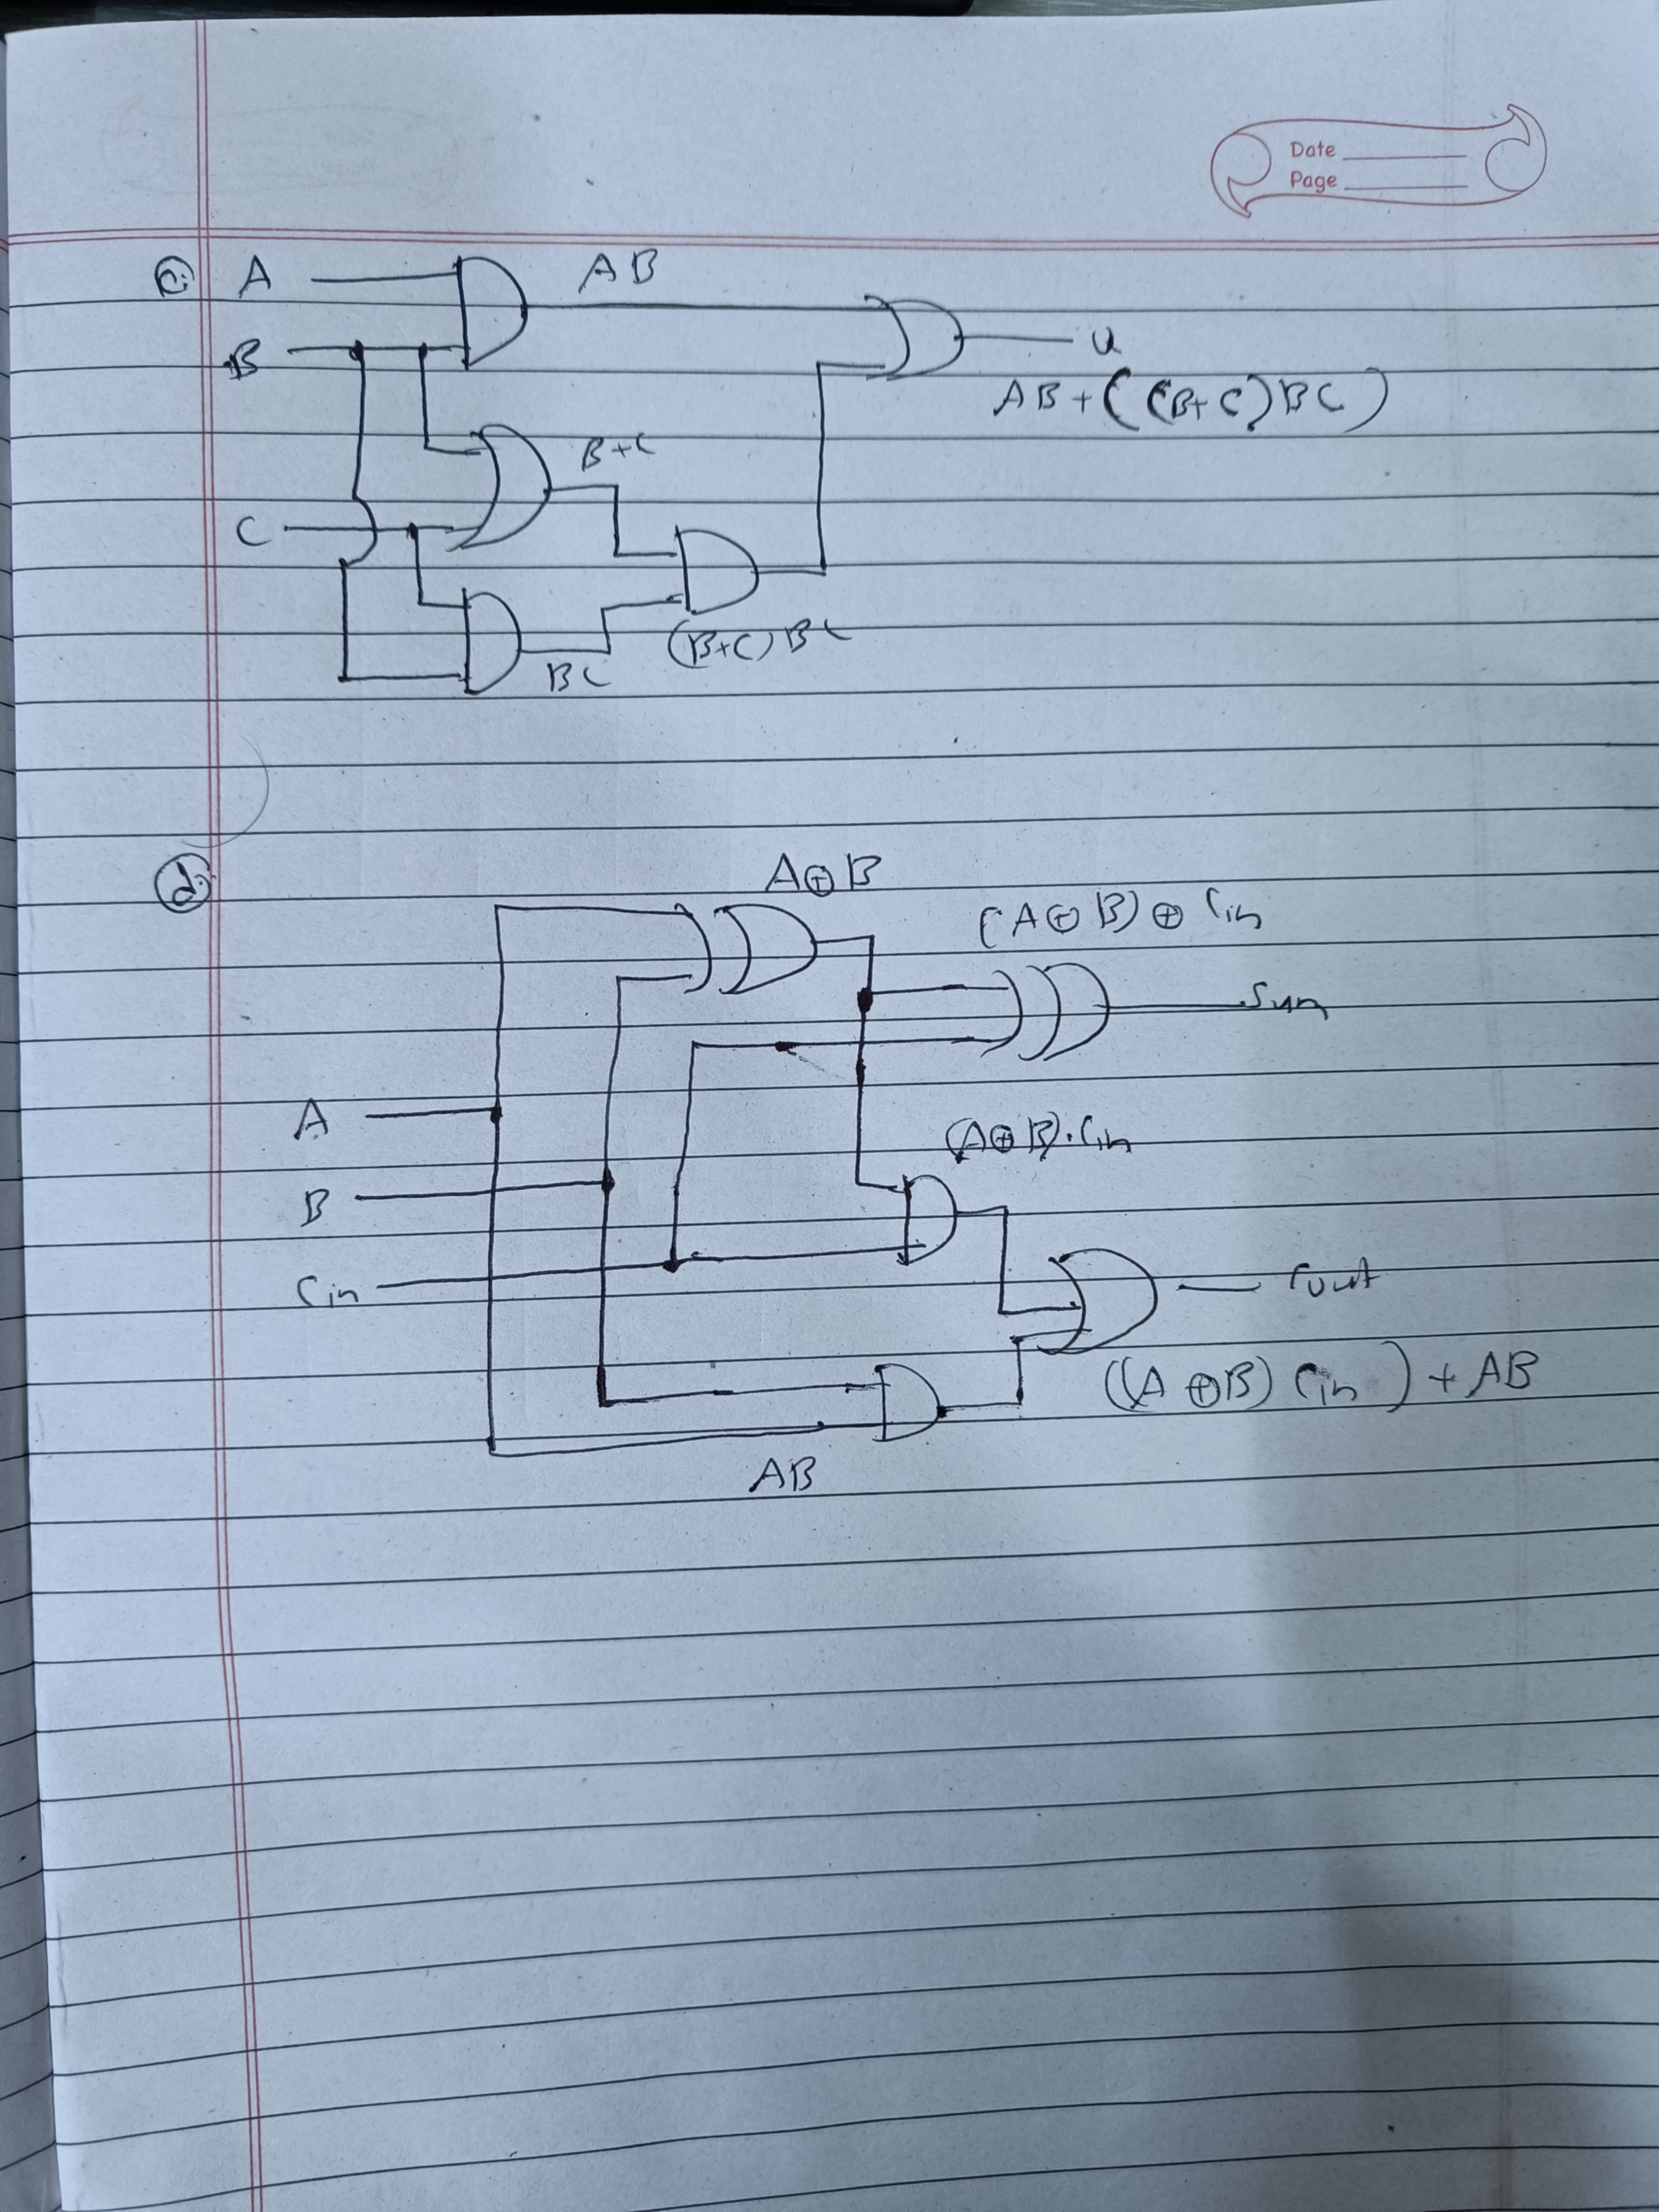 Date
Page
c. A AB
B
u
AB + ((B+C)BC)
B+C
C
(B+C)BC
BC
d. A⊕B
(A⊕B)⊕Cin
Sum
A
(A⊕B).Cin
B
Cin
Cout
((A⊕B)Cin) + AB
AB